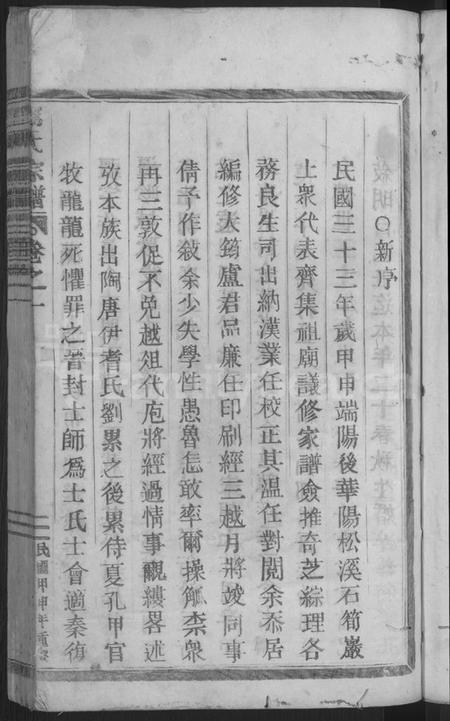 〇新序
民國三十三年歲甲申端陽後華陽松溪石筍巖
士眾代表齊集祖廟議修家譜僉推奇芝綜理各
務良生司出納漢業任校正其溫任對閱余忝居
編修大筠盧君品廉任印刷經三越月將竣同事
倩予作敍余少失學性愚魯怎敢率爾操觚柰眾
再三敦促不免越俎代庖將經過情事覼縷畧述
攷本族出陶唐伊耆氏劉累之後累侍夏孔甲官
牧龍龍死懼罪之晉封士師爲士氏士會適秦復
氏宗譜
卷之一
民國甲申年重修